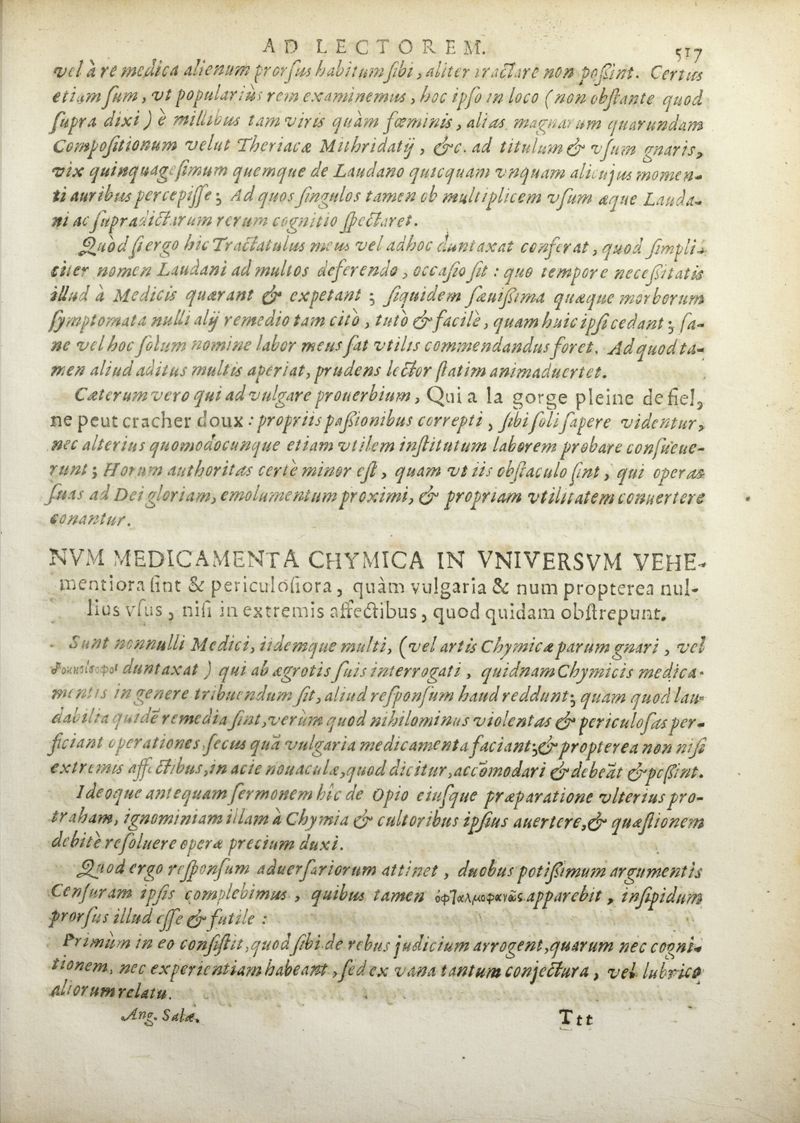 AD LECTOREM. 517
vel à re medica alienum prorsus habitum sibi, aliter tractare non possint. Certus
etiam sum, vt populariùs rem examinemus, hoc ipso in loco (non obstante quod
supra dixi) è millibus tam viris quàm fœminis, alias magnarum quarundam
Compositionum velut Theriacæ Mithridatij, &c. ad titulum & vsum gnaris,
vix quinquagesimum quemque de Laudano quicquam vnquam alicujus momen-
ti auribus percepisse; Ad quos singulos tamen ob multiplicem vsum æque Lauda-
ni ac supradictarum rerum cognitio spectaret.
Quòd si ergo hic Tractatulus meus vel adhoc duntaxat conferat, quod simpli-
citer nomen Laudani ad multos deferendo, occasio sit: quo tempore necessitatis
illud à Medicis quærant & expetant; siquidem sæuissima quæque morborum
symptomata nulli alij remedio tam citò, tutò & facilè, quam huic ipsi cedant; sa-
ne vel hoc solum nomine labor meus sat vtilis commendandus foret. Ad quod ta-
men aliud aditus multis aperiat, prudens lector statim animaduertet.
Cæterum vero qui ad vulgare prouerbium, Qui a la gorge pleine de fiel,
ne peut cracher doux: propriis passionibus correpti, sibi soli sapere videntur,
nec alterius quomodocunque etiam vtilem institutum laborem probare consueue-
runt; Horum authoritas certè minor est, quam vt iis obstaculo sint, qui operas
suas ad Dei gloriam, emolumentum proximi, & propriam vtilitatem conuertere
conantur.
NVM MEDICAMENTA CHYMICA IN VNIVERSVM VEHE-
mentiora sint & periculosiora, quàm vulgaria & num propterea nul-
lius vsus, nisi in extremis affectibus, quod quidam obstrepunt.
Sunt nonnulli Medici, iidemque multi, (vel artis Chymicæ parum gnari, vel
duntaxat) qui ab ægrotis suis interrogati, quidnam Chymicis medica-
mentis in genere tribuendum sit, aliud responsum haud reddunt; quam quod lau-
dabilia quidē remedia sint, verùm quod nihilominus violentas & periculosas per-
ficiant operationes, secus quā vulgaria medicamenta faciant; & propterea non nisi
extremis affectibus, in acie nouaculæ, quod dicitur, accōmodari & debeāt & possint.
Ideoque antequam sermonem hîc de Opio eiusque præparatione vlterius pro-
traham, ignominiam illam à Chymia & cultoribus ipsius auertere, & quæstionem
debitè resoluere operæ precium duxi.
Quod ergo responsum aduersariorum attinet, duobus potissimum argumentis
Censuram ipsis complebimus, quibus tamen ὀφθαλμοφανῶς apparebit, insipidum
prorsus illud esse & futile:
Primùm in eo consistit, quod sibi de rebus judicium arrogent, quarum nec cogni-
tionem, nec experientiam habeant, sed ex vana tantum conjectura, vel lubrico
aliorum relatu.
Ang. Salæ. Ttt